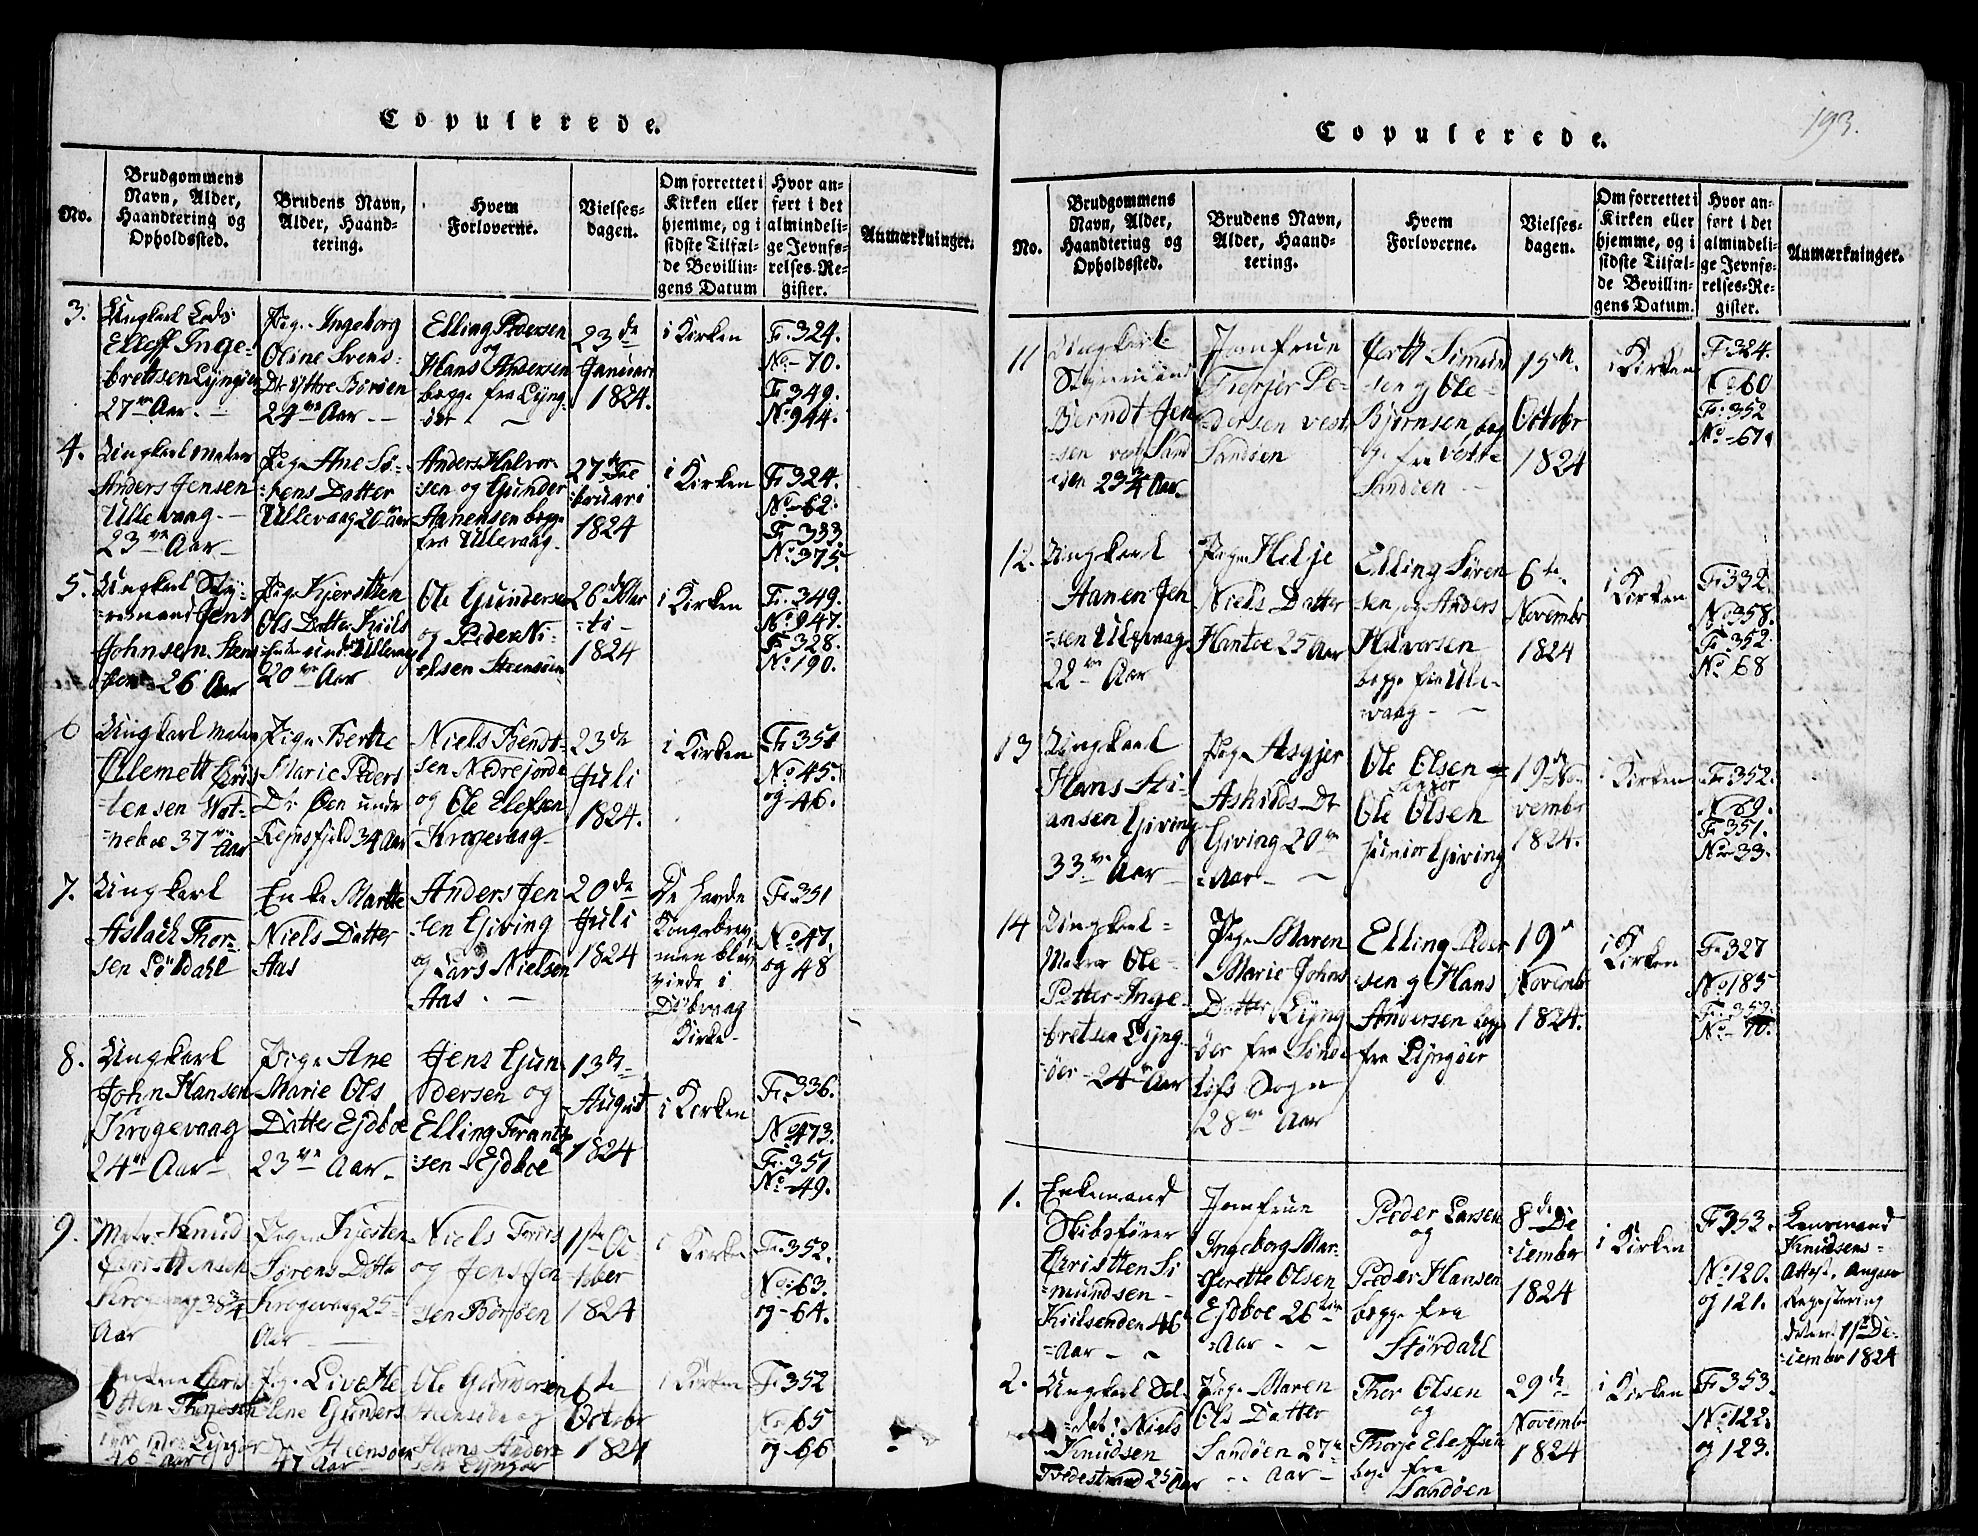 Copulerede.
No.
Brudgommens
Navn, Alder,
Haandtering og
Opholdssted.
Brudens Navn,
Alder, Haand-
tering.
Hvem
Forloverne.
Vielses-
dagen.
Om forrettet i
Kirken eller
hjemme, og i
sidste Tilfæl-
de Bevillin-
gens Datum
Hvor an-
ført i det
almindeli-
ge Jevnfø-
relses-Re-
gister.
Anmærkninger.
3.
Ungkarl Lods
Elleff Inge-
brettsen Lyngøer
27 Aar.
Pige Ingeborg
Oline Svens-
Dr Yttre Borøen
24 Aar
Elling Pedersen
og
Hans Andersen
begge fra Lyng-
öer
23de
Januari
1824.
i Kirken
F. 324.
No 70.
F. 349.
No 944.
4.
Ungkarl Matros
Anders Jensen
Ullevaag.
23 Aar
Pige Ane Sø-
rens Datter
Ullevaag 20 Aar
Anders Halvor-
sen og Gunder
Aanensen begge
fra Ullevaag.
27de Fe-
bruari
1824
i Kirken
F. 324.
No 62.
F. 333
No. 375
5.
Ungkarl Sty-
remand Jens
Johnsen Steens-
26 Aar
Pige Kjerstten
Ols Datter Kiils-
Ullevaag
20 Aar
Ole Gundersen
og Peder Ni-
elsen Steensøen
26de Mar-
ti
1824
i Kirken
F. 349.
No. 947.
F. 328.
No. 190.
6
Ungkarl Matros
Clemett Chris-
tensen Wat-
neboe 37 Aar
Pige Berthe
Marie Peders
Dr Øen under
34 Aar
Niels Bendt-
sen Nedrejorde
og Ole Elefsen
Krogevaag
23de
Juli
1824.
i Kirken
F. 351
No. 45.
og 46.
7.
Ungkarl
Aslach Thor-
sen Løvdahl
Enke Marthe
Niels Datter
Aas
Anders Jen-
sen Giving
og Lars Nielsen
Aas.
20de
Juli
1824
De havde
Kongebrev
men blev
viede i
Dybvaag
Kirke
F. 351
No. 47.
og 48
8.
Ungkarl
John Hansen
Krogevaag
24 Aar
Pige Ane
Marie Ols
Datter Ejdboe
23 Aar
Jens Gun-
dersen og
Elling Frantz-
sen Ejdboe
13de
August
1824
i Kirken
F. 336.
No 473.
F. 351
No. 49.
9.
Matr. Knud
Christensen
Krogevaag 38¾
Aar
Pige Kjesten
Sørens Datter
Krogevaag 25
Aar
Niels
og Jens Jen-
sen Borøen
1ste Oc-
tober
1824
i Kirken
F. 352.
No. 63.
og 64.
Pige Livethe
Gunders
Dr Steensøen
47 Aar
Ole Gundersen
Steensøen og
Hans Ander-
sen Lyngør
Octobr
1824
i Kirken
F. 352
No 65
og 66
Copulerede.
193.
No.
Brudgommens
Navn, Alder,
Haandtering og
Opholdssted.
Brudens Navn,
Alder, Haand-
tering.
Hvem
Forloverne.
Vielses-
dagen.
Om forrettet i
Kirken eller
hjemme, og i
sidste Tilfæl-
de Bevillin-
gens Datum.
Hvor an-
ført i det
almindeli-
ge Jevnfø-
relses-Re-
gister.
Anmærkninger.
11
Ungkarl
Styremand
Berndt Jen-
sen vest Sand-
øen 23¾ Aar.
Jomfrue
Pe-
dersen vest
Sandøen
Simon-
sen og Ole
Bjørnsen beg-
ge fra Vestre
Sandøen
15de
Octobr
1824
i Kirken
F. 324.
No 60
F. 352
No. 67.
12.
Ungkarl
Aanen Jen-
sen Ulevaag
22 Aar
Pige Helje
Niels Datter
Hantoe 25 Aar
Elling Søren-
sen og Anders
Halvorsen
begge fra Ule-
vaag
6te
Novembr
1824
i Kirken
F. 332
No. 358.
F. 352
No 68
13
Ungkarl
Hans Sti-
ansen Giving
33 Aar
Pige Asgjer
Askilds Dr
Giving 20
Aar
Ole Olsen
senior
Ole Olsen
junior Giving
19de No-
vembr
1824.
i Kirken
F. 352.
No 69.
F. 351.
No. 33.
14
Ungkarl
Matros Ole
Petter Inge-
bretsen Lyng-
öer 24 Aar
Pige Maren
Marie Johns
Datter Lyng-
öer fra Sønde-
løfs Sogn
28 Aar
Elling Peder-
sen og Hans
Andersen begge
fra Lyngöer
19
Novembr
1824.
i Kirken
F. 327
No 185
F. 352.
No. 70.
1.
Enkemand
Skibsfører
Christten Si-
mundsen
Kiilsenden 46
Aar
Jomfrue
Ingeborg Mar-
gerette Olsen
Ejdboe 26
Aar
Peder Larsen
og
Peder Hansen
begge fra
Størdahl
8de De-
cember
1824
i Kirken
F. 353.
No 120.
og 121.
Lensmand
Knudsens
Attest, Angaar
Registering
dateret 1ste De-
cembr 1824
2.
Ungkarl Sol-
dat Niels
Knudsen
Tvedestrand 25 Aar
Pige Maren
Ols Datter
Sandøen 27
Aar
Thor Olsen
og
Thorje Eleffsen
begge fra
Sandøen
29de
Novembr
1824
i Kirken
F. 353.
No. 122.
og 123.